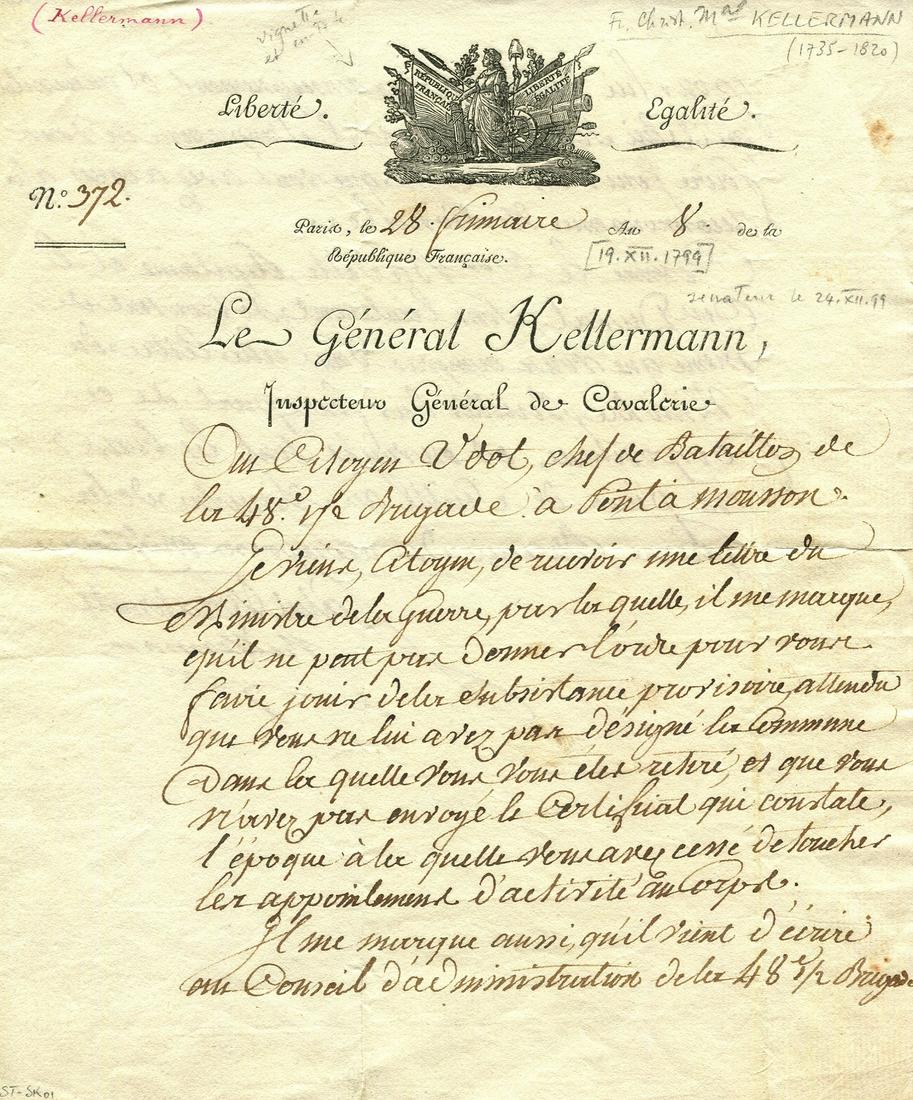 (Kellermann)
vignette
et en-tête
Fr. Christ. Mal KELLERMANN
(1735-1820)
RÉPUBLIQUE FRANÇAISE
LIBERTÉ EGALITÉ
Liberté. Egalité.
N.o 372.
Paris, le 28 frimaire An 8 de la
République Française.
[19.XII.1799]
senateur le 24.XII.99
Le Général Kellermann,
Inspecteur Général de Cavalerie
Au Citoyen Udot, chef de Bataillon de
la 48.e 1/2 Brigade à Pont à Mousson.
Je viens, Citoyen, de recevoir une lettre du
Ministre de la Guerre, par la quelle, il me marque,
qu'il ne peut pas donner l'ordre pour vous
faire jouir de la subsistance provisoire, attendu
que vous ne lui avez pas désigné la Commune
Dans la quelle vous vous êtes retiré, et que vous
n'avez pas envoyé le Certificat qui constate,
l'époque à la quelle vous avez cessé de toucher
les appointemens d'activité au Corps.
Il me marque aussi, qu'il vient d'écrire
au Conseil d'administration de la 48e 1/2 Brigade
ST-SK01